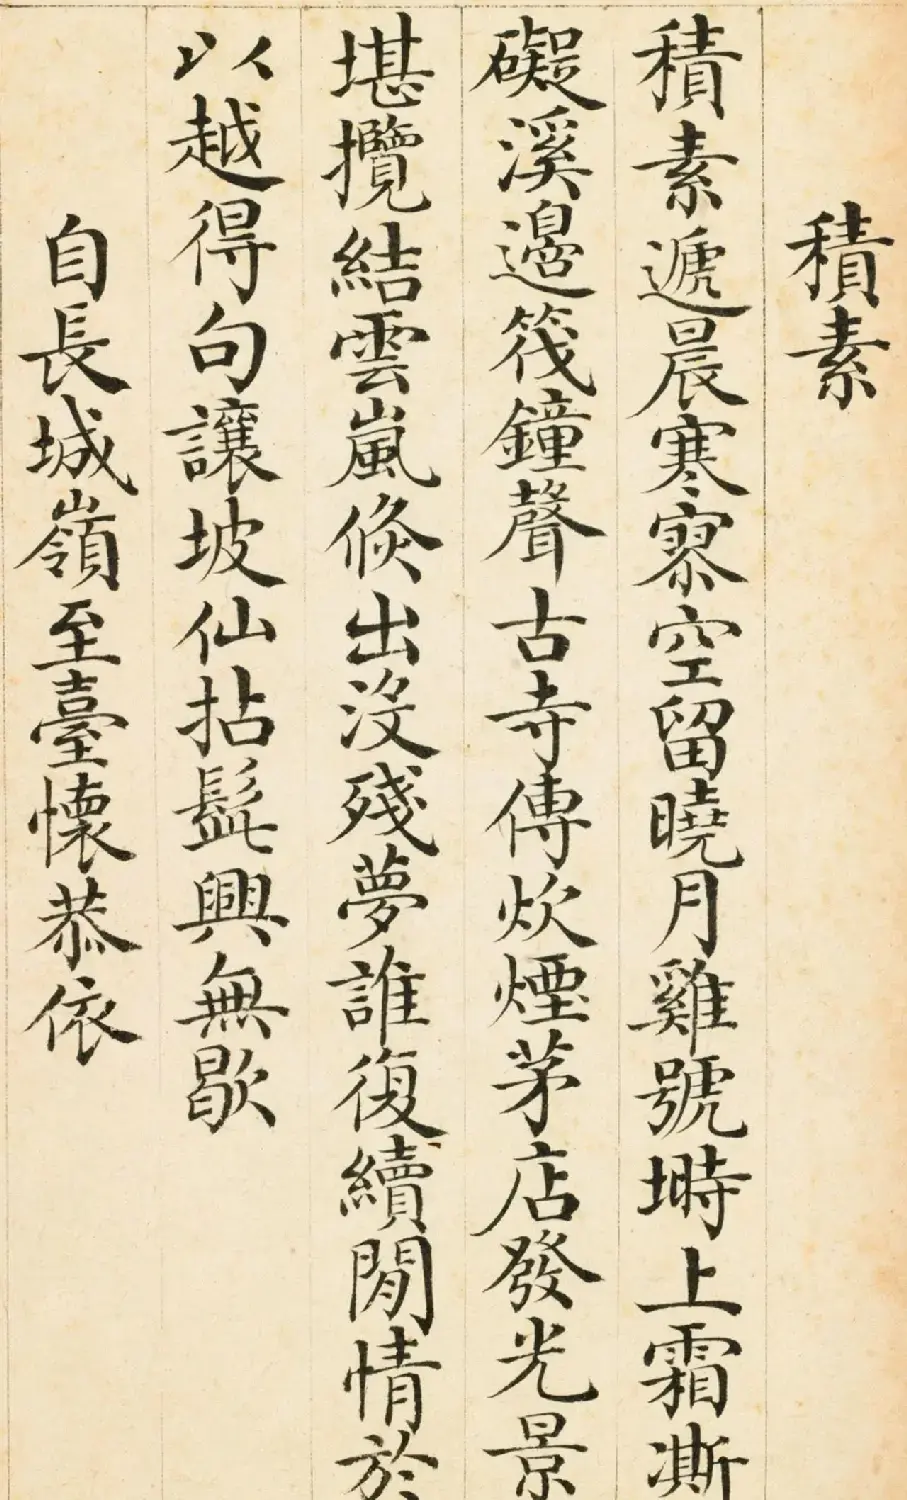 積素
積素遞晨寒寥空留曉月雞號塒上霜凘
礙溪邊筏鐘聲古寺傳炊煙茅店發光景
堪攬結雲嵐倐出沒殘夢誰復續閒情於
以越得句讓坡仙拈髭興無歇
自長城嶺至臺懷恭依